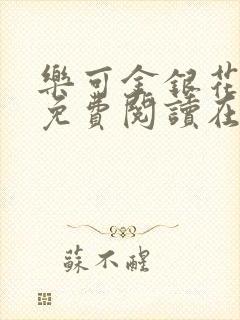 樂可金銀花
免費閱讀在
蘇不醒